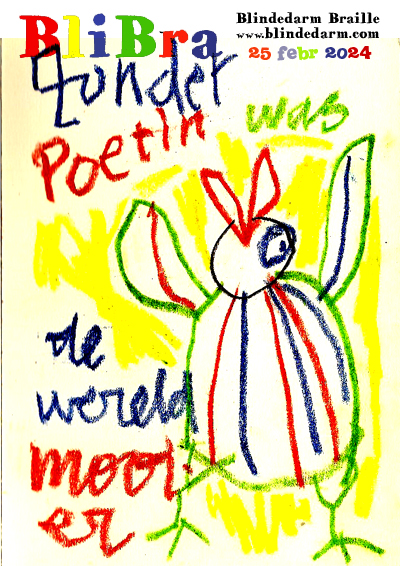 BliBra
Blindedarm Braille
www.blindedarm.com
25 febr 2024
Zonder
Poetin was
de
wereld
mooi
er